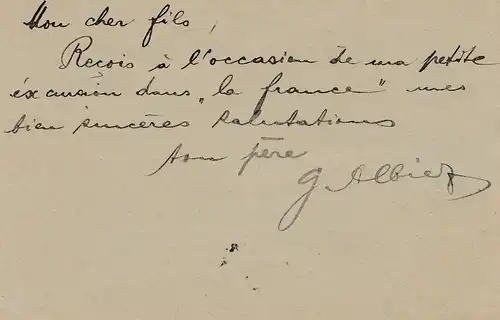 Mon cher fils,
Reçois à l'occasion de ma petite
éxcursion dans „la france" mes
bien sincères salutations
ton père
G. Albiez